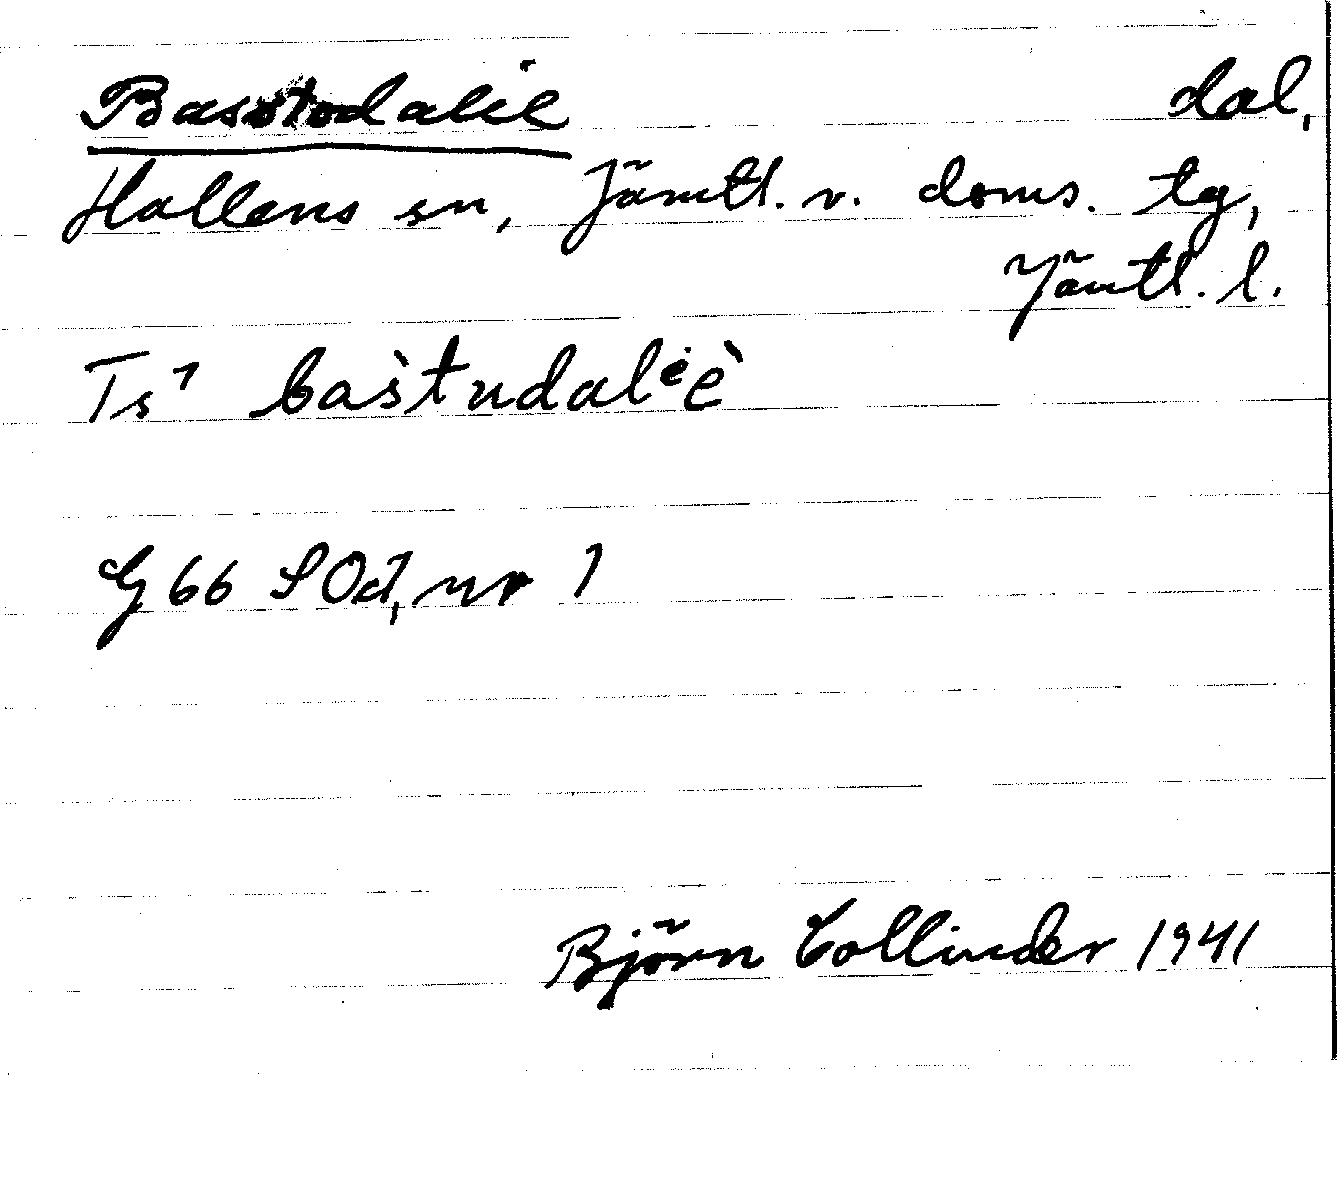 Basstodalie dal,
Hallens sn, Jämtl. v. doms. tg,
Jämtl. l.
Ts1 bàs̀tudaliè
G 66 SOd, nr 1
Björn Collinder 1941